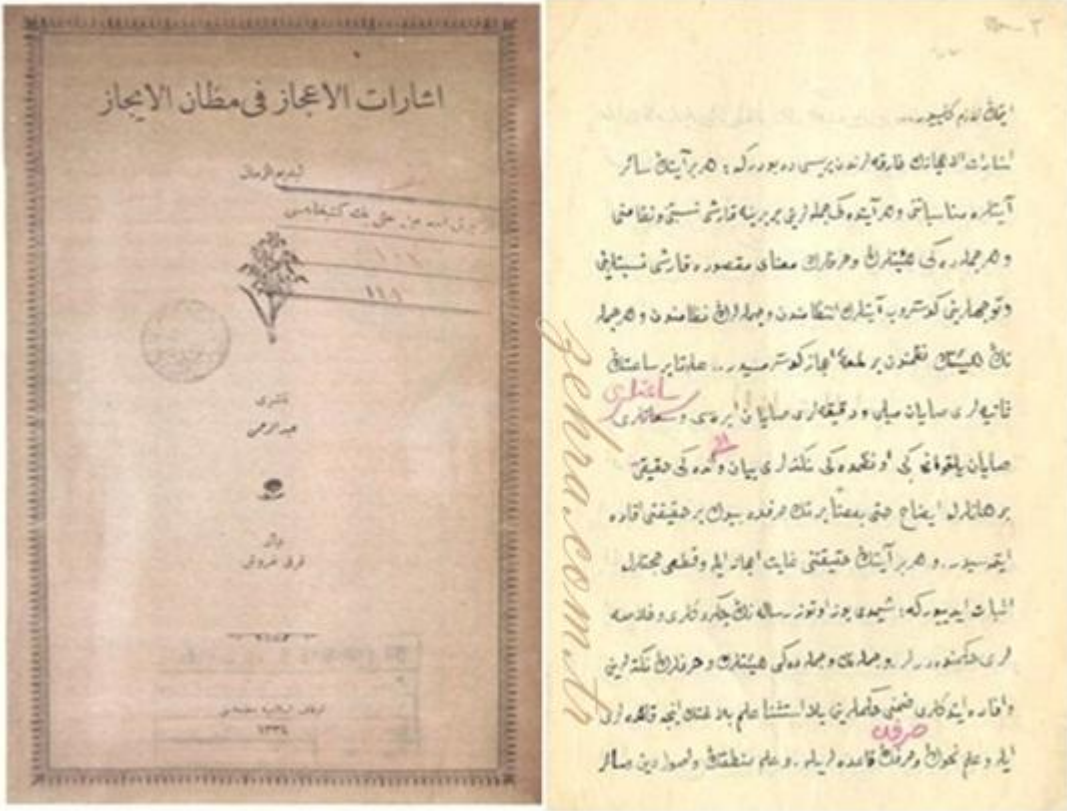 اشارات الاعجاز فى مظان الايجاز
لبديع الزمان
١٠١
١١٩
ناشرى
عبدالرحمن
قرق غروش
اوقاف اسلاميه مطبعه سى
١٣٣٤
٢
اشارات الاعجازك فارقه لرندن بريسى ده بودركه؛ هر بر آيتك سائر
آيتلره مناسباتنى وهر آيتده كى جمله لرينى بر برينه قارشى نسبتنى ونظامنى
وهر جمله ده كى هيئتلرك وحرفلرك معناى مقصوده قارشى نسبتلرينى
وتوجهلرينى كوستروب آيتلرك انتظامندن وجمله لرك نظامندن وهر جمله
نك هيئتنك نظمندن بر لمعۀ اعجاز كوسترمسيدر.. عادتا بر ساعتك
ساعتلرى
ثانيه لرى صايان ميلى ودقيقه لرى صايان ابره سى و
صايان كبى او نظمده كى نكته لرى بيان وآنده كى حقيقى
برهانلرله ايضاح حتى بعضًا بر تك حرفده بيوك بر حقيقتى افاده
ايتمسيدر.. وهر بر آيتك حقيقتنى غايت ايجاز ايله وقطعى حجتلرله
اثبات ايدييوركه؛ شيمدى يوز اوتوز رساله نك چكردكلرى وخلاصه
لرى حكمنده درلر. وجمله نك وجمله ده كى هيئتلرك وحرفلرك نكته لرينى
وافاده ايتدكلرى ضمنى حكملرينى بلا استثنا علم بلاغتك اينجه قاعده لرى
صرفك
ايله وعلم نحوك وصرفك قاعده لريله. وعلم منطقك واصول دين وسائر
zehra.com.tr